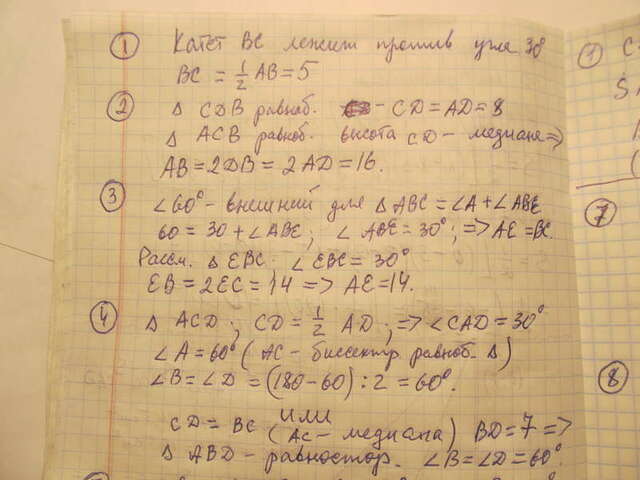 1 Катет BC лежит против угла 30
BC = 1/2 AB = 5
2 Δ CDB равноб. - CD = AD = 8
Δ ACB равноб. высота CD - медиана =>
AB = 2DB = 2AD = 16.
3 ∠60° - внешний для Δ ABC = ∠A + ∠ABE
60 = 30 + ∠ABE; ∠ABE = 30°; => AE = BC.
Рассм. Δ EBC. ∠EBC = 30°
EB = 2EC = 14 => AE = 14.
4 Δ ACD; CD = 1/2 AD; => ∠CAD = 30°
∠A = 60° (AC - биссектр. равноб. Δ)
∠B = ∠D = (180 - 60) : 2 = 60°.
или
CD = BC (AC - медиана) BD = 7 =>
Δ ABD - равностор. ∠B = ∠D = 60°
1 C
S
7
8